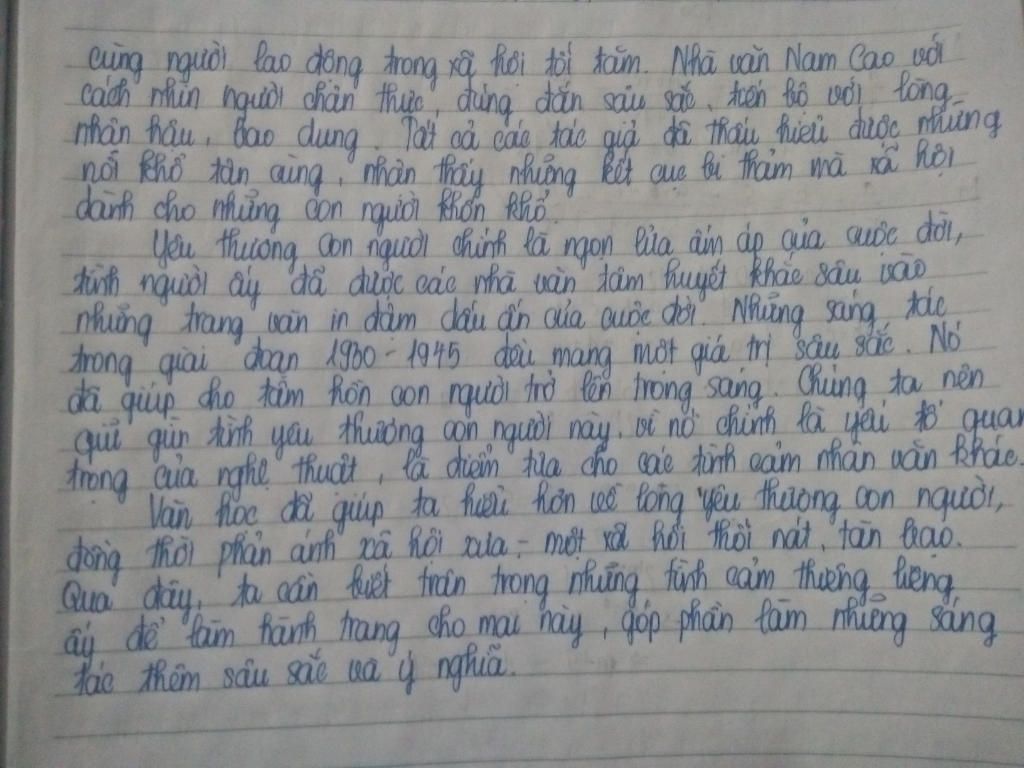 cùng người lao động trong xã hội tối tăm. Nhà văn Nam Cao với
cách nhìn người chân thực, đúng đắn sâu sắc, tiến bộ với lòng
nhân hậu, bao dung. Tất cả các tác giả đã thấu hiểu được những
nỗi khổ tận cùng, nhận thấy những kết cục bi thảm mà xã hội
dành cho những con người khốn khổ.
Yêu thương con người chính là ngọn lửa ấm áp của cuộc đời,
tình người ấy đã được các nhà văn tâm huyết khắc sâu vào
những trang văn in đậm dấu ấn của cuộc đời. Những sáng tác
trong giai đoạn 1930 - 1945 đều mang một giá trị sâu sắc. Nó
đã giúp cho tâm hồn con người trở lên trong sáng. Chúng ta nên
giữ gìn tình yêu thương con người này, vì nó chính là yếu tố quan
trọng của nghệ thuật, là điểm tựa cho các tình cảm nhân văn khác.
Văn học đã giúp ta hiểu hơn về lòng yêu thương con người,
đồng thời phản ánh xã hội xưa - một xã hội thối nát, tàn bạo.
Qua đây, ta cần biết trân trọng những tình cảm thiêng liêng
ấy để làm hành trang cho mai này, góp phần làm những sáng
tác thêm sâu sắc và ý nghĩa.